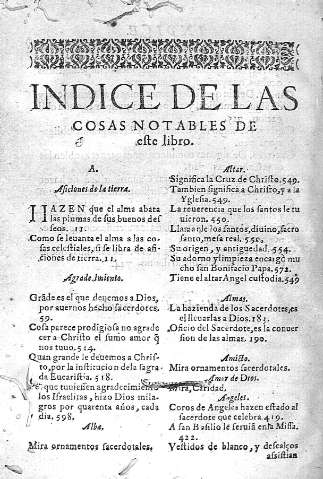 INDICE DE LAS
COSAS NOTABLES DE
este libro.
A.
Aficiones de la tierra.
HAZEN que el alma abata
las plumas de sus buenos des
seos. 11.
Como se levanta el alma a las co-
sas celestiales, si se libra de afi-
ciones de tierra. 11.
Agradecimiento.
Grãde es el que devemos a Dios,
por avernos hecho sacerdotes.
59.
Cosa parece prodigiosa no agrade
cer a Christo el sumo amor q̃
nos tuvo. 514.
Quan grande le devemos a Chris-
to, por la institucion de la sagra
da Eucaristia. 518.
que tuviessen agradecimiento
los Israelitas, hizo Dios mila-
gros por quarenta años, cada
dia. 598.
Alba.
Mira ornamentos sacerdotales.
Altar.
Significa la Cruz de Christo. 549.
Tambien significa a Christo, y a la
Yglesia. 549.
La reverencia que los santos le tu
vieron. 550.
Llamanle los santos, divino, sacro
santo, mesa real. 550.
Su origen, y antiguedad. 554.
Su adorno y limpieza encargò mu
cho san Bonifacio Papa. 572.
Tiene el altar Angel custodia. 549
Almas.
La hazienda de los Sacerdotes, es
el llevarlas a Dios. 181.
Oficio del Sacerdote, es la conver
sion de las almas. 190.
Amicto.
Mira ornamentos sacerdotales.
Amor de Dios.
Mira, Caridad.
Angeles.
Coros de Angeles hazen estado al
sacerdote que celebra. 419.
A san Basilio le servia en la Missa.
422.
Vestidos de blanco, y descalços
assistian